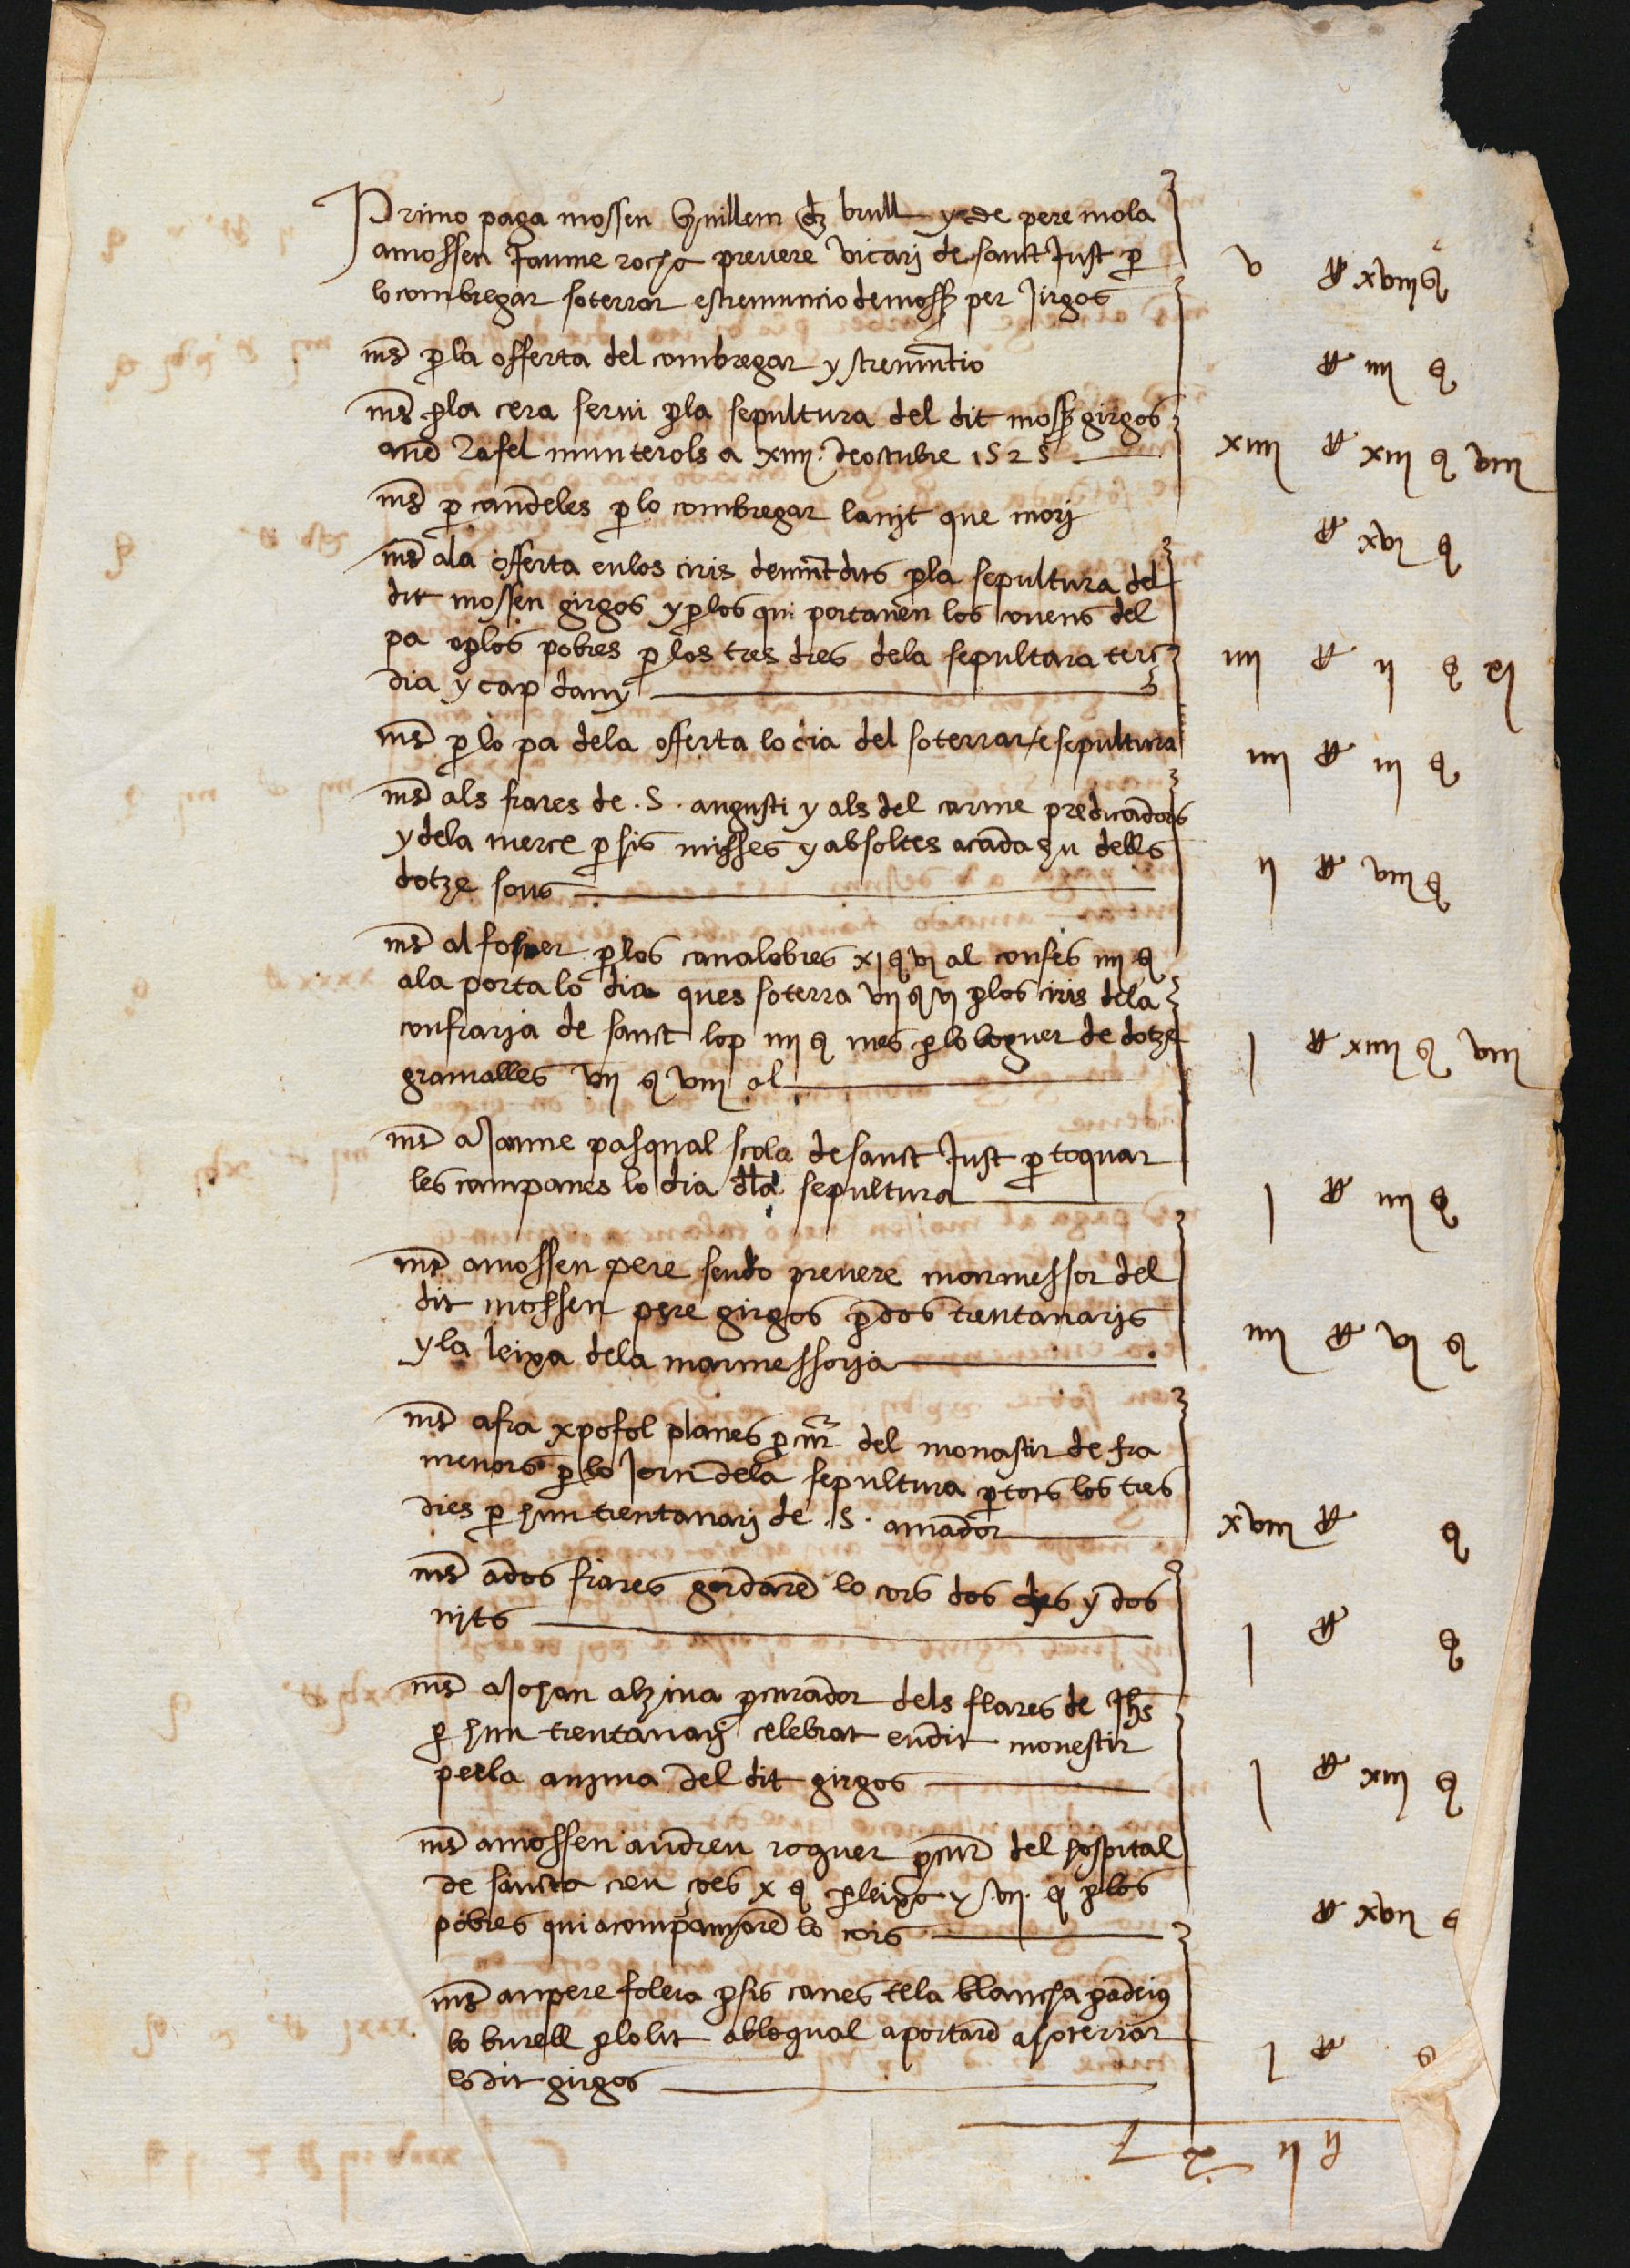 Primo paga mossen Guillem de brull y de pere mola
a mossen Jaume rocha prevere vicari de sanct Just p̱
lo combregar soterrar e stremuncio de moss̱ per Jirgos v ₶ xviiii s̱
mes p̱ la offerta del combregar y stremuntio ₶ iiii s̱
mes p̱ la cera servi p̱ la sepultura del dit moss̱ girgos
an Rafel munterols a xiiii de octubre 1525 xiiii ₶ xiii s̱ viii
mes p̱ candeles p̱ lo combregar la nit que mori ₶ xvi s̱
mes a la offerta en los ciris p̱ la sepultura del
dit mossen girgos y p̱ los qui portaven los covens del
pa y p̱ los pobres p̱ los tres dies dela sepultura terc
dia y cap dany iiii ₶ ii s̱ xi
mes p̱ lo pa dela offerta lo dia del soterrar / e sepultura iiii ₶ iii s̱
mes als frares de .S. augusti y als del carme predicadors
y dela merce p̱ sis misses y absoltes a cada hu dells
dotze sous ii ₶ viii s̱
mes al foser p̱ los canalobres xi s̱ vi al confes iiii s̱
a la porta lo dia ques soterra vii s̱ vi p̱ los ciris dela
confraria de sanct lop iiii s̱ mes p̱ lo loguer de dotze
gramalles vii s̱ viii al i ₶ xiiii s̱ viii
mes a Jaume pasqual scola de sanct Just p̱ toquar
les campanes lo dia dla sepultura i ₶ iiii s̱
mes a mossen pere prevere marmessor del
dit mossen pere girgos p̱ dos trentanaris
y la leixa dela marmessoria iiii ₶ vi s̱
mes a fra xpofol planes p̱cur del monastir de fra
menors p̱ lo Jorn dela sepultura p̱ tots los tres
dies p̱ hun trentanari de .S. amador xviii ₶ s̱
mes a dos frares gordaren lo cors dos dies y dos
nits i ₶ s̱
mes a Johan alzina p̱curador dels frares de Jhs
p̱ hun trentanari celebrat en dit monestir
per la anima del dit girgos i ₶ xiii s̱
mes a mossen andreu roguer p̱cur del hospital
de sancta creu ço es x s̱ p̱ leixa y vii s̱ p̱ los
pobres qui acompanyaren lo cors ₶ xvii s
mes an pere solera p̱ sis canes tela blancha
lo burell p̱ lo lit ab lo qual aportaren a soterrar
lo dit girgos i ₶ s